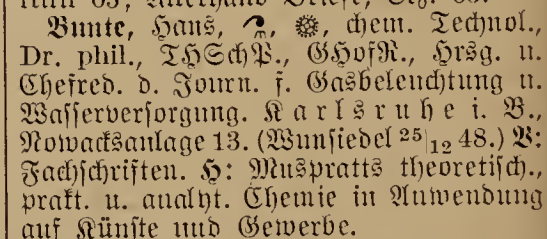 Bunte, Hans, chem. Technol.,
Dr. phil., THSchP., GHofR., Hrsg. u.
Chefred. d. Journ. f. Gasbeleuchtung u.
Wasserversorgung. Karlsruhe i. B.,
Nowacksanlage 13. (Wunsiedel 25|12 48.) V:
Fachschriften. H: Muspratts theoretisch.,
prakt. u. analyt. Chemie in Anwendung
auf Künste und Gewerbe.